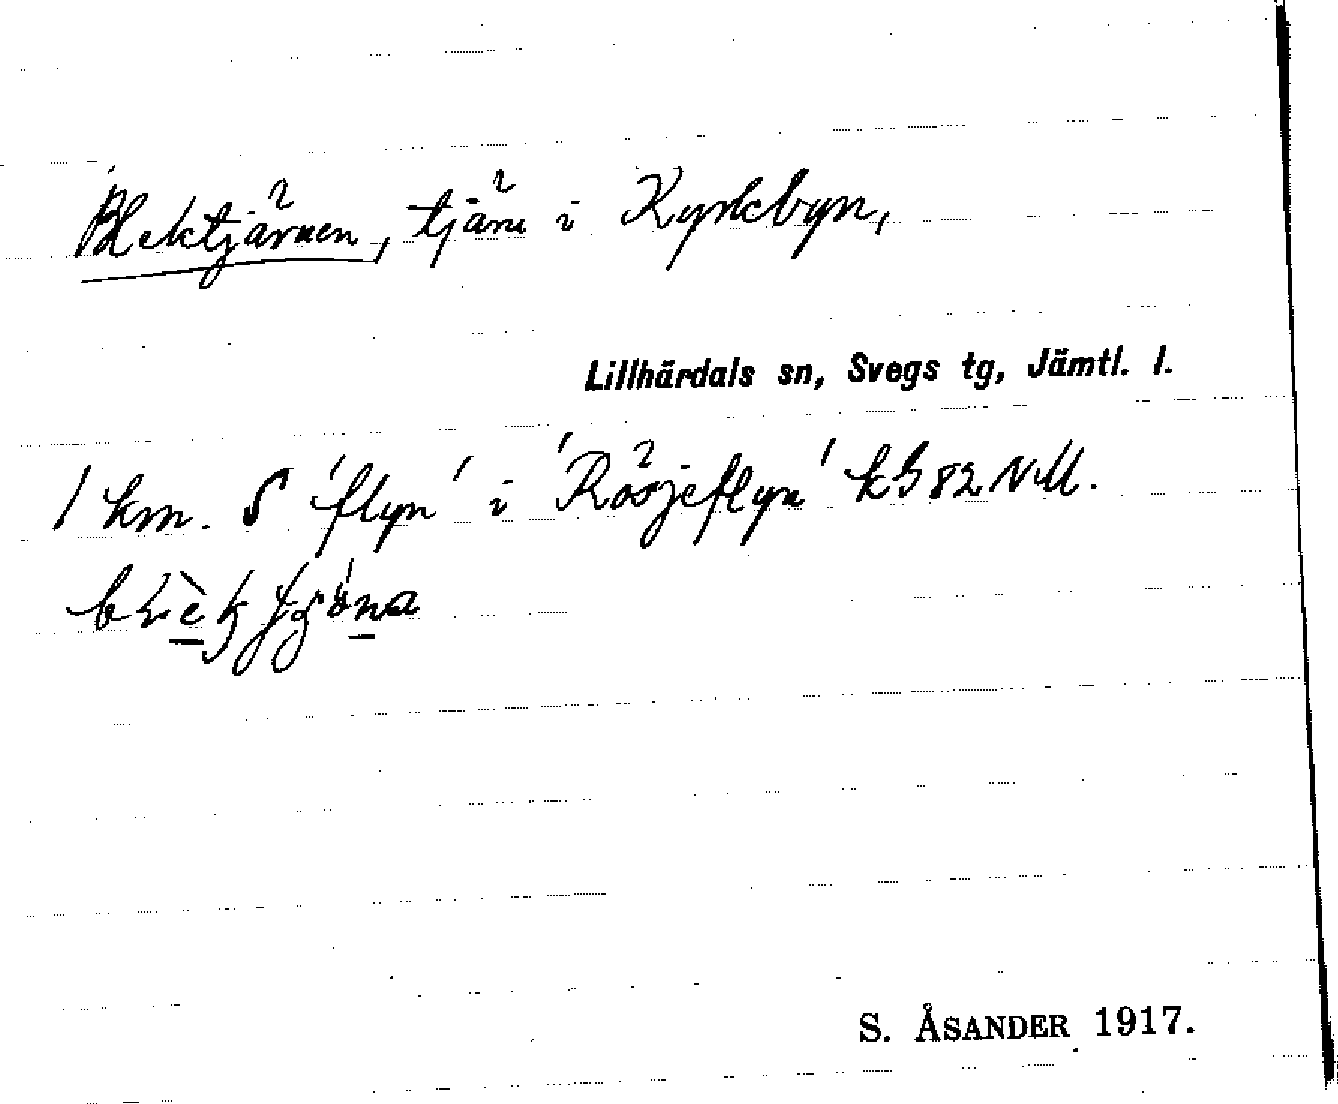 Blektjärnen, tjärn i Kyrkbyn,
Lillhärdals sn, Svegs tg, Jämtl. l.
1 km. S 'flyn' i 'Rösjeflyn' kB 82 NM.
S. ÅSANDER 1917.